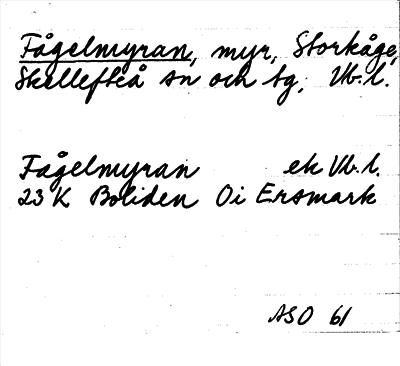 Fågelmyran, myr, Storkåge,
Skellefteå sn och tg, Vb. l.
Fågelmyran ek Vb. l.
23 K Boliden 0i Ersmark
ASO 61